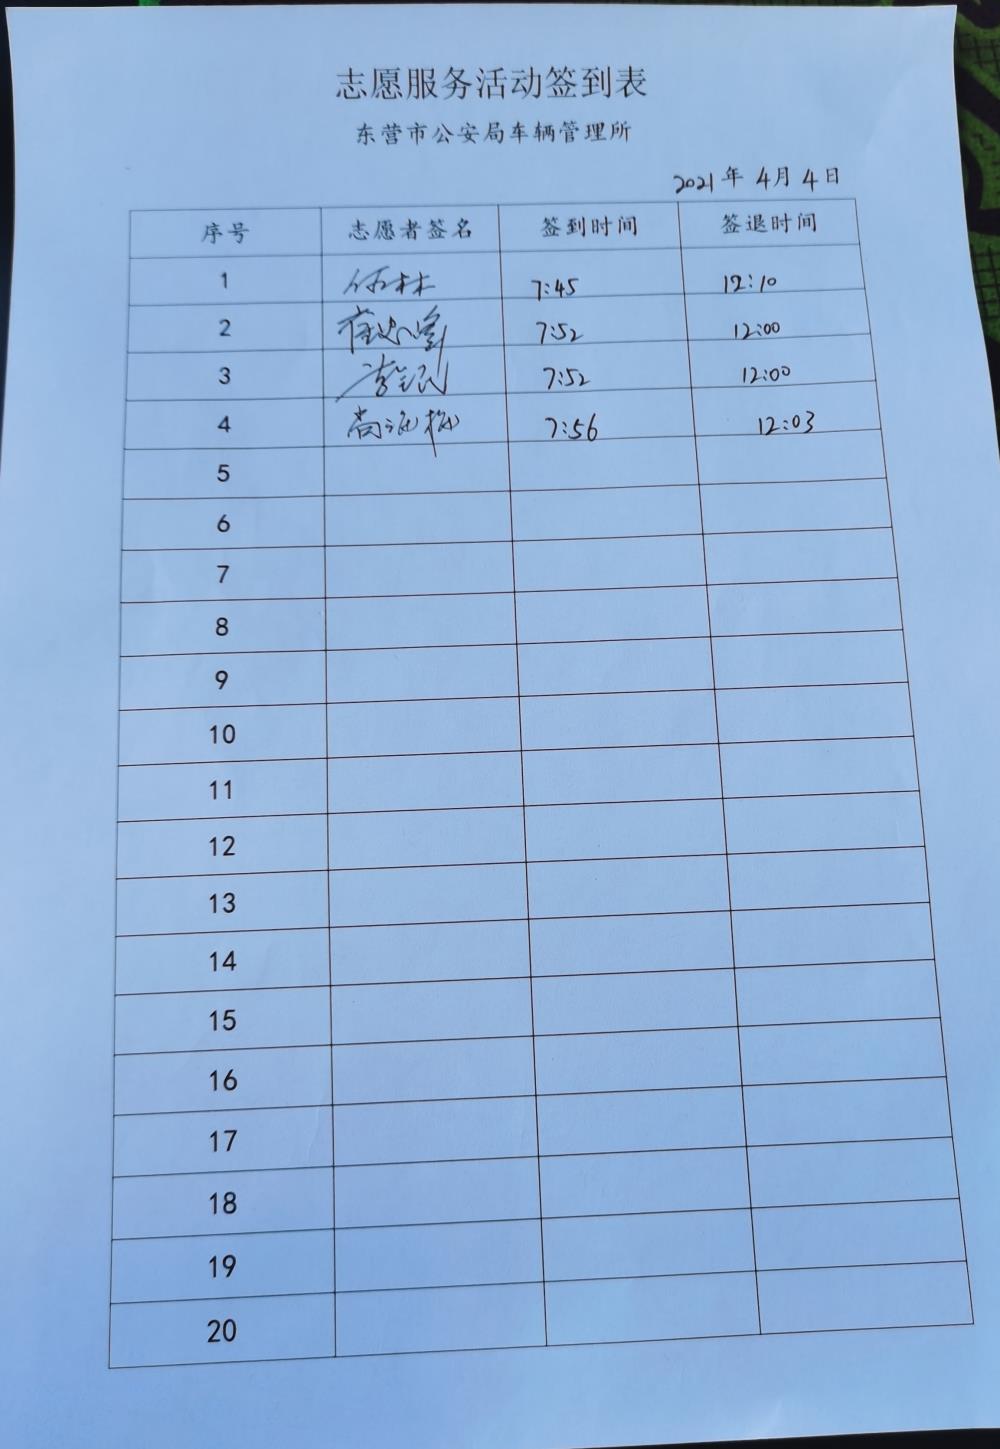 志愿服务活动签到表
东营市公安局车辆管理所
2021年 4月 4日
序号 志愿者签名 签到时间 签退时间
1 7:45 12:10
2 7:52 12:00
3 7:52 12:00
4 7:56 12:03
5
6
7
8
9
10
11
12
13
14
15
16
17
18
19
20